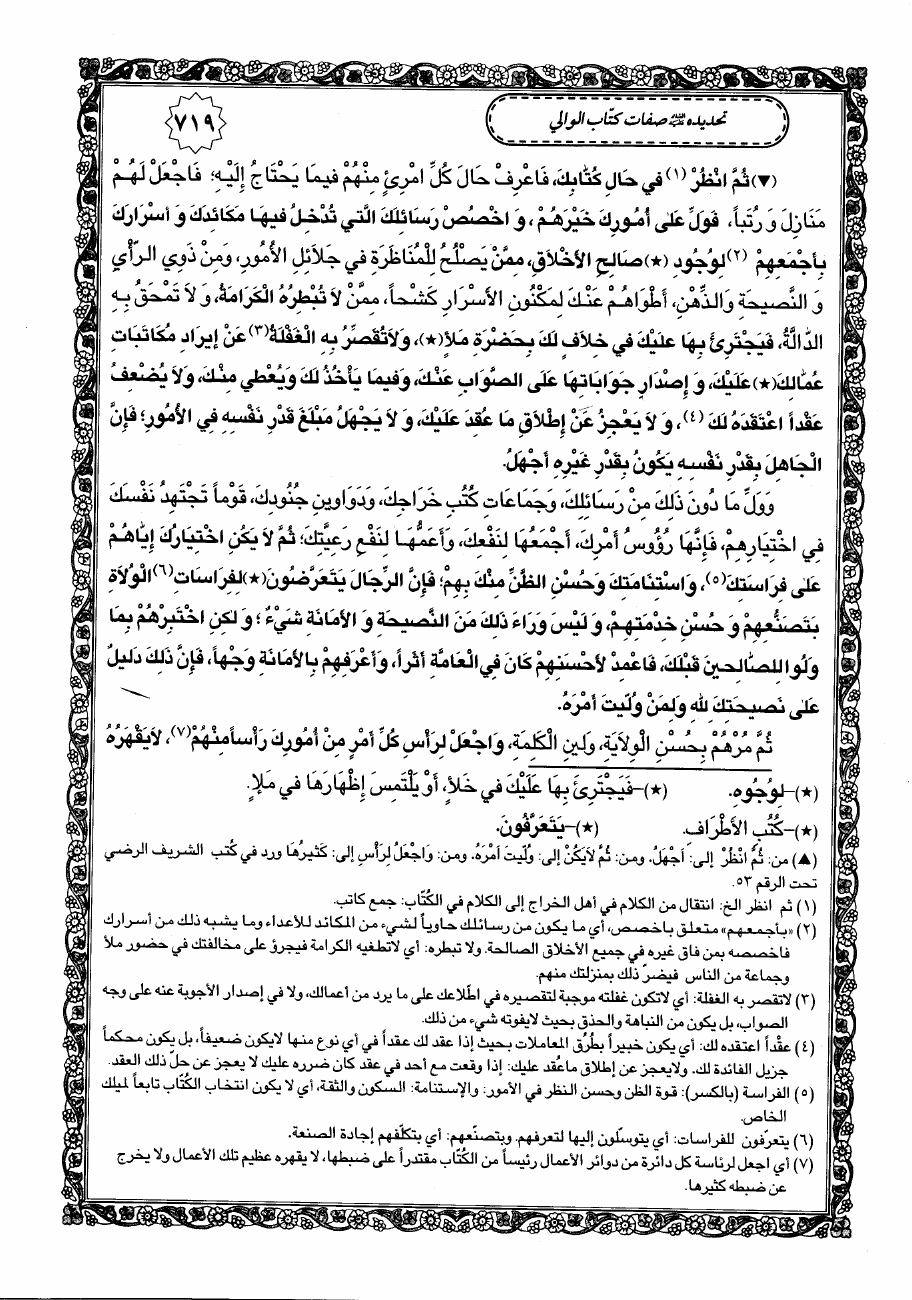 تحديده عليه السلام صفات كتّاب الوالي
٧١٩
(▼) ثُمَّ انْظُرْ (١) في حَالِ كُتَّابِكَ، فَاعْرِفْ حَالَ كُلِّ امْرِئٍ مِنْهُمْ فيمَا يَحْتَاجُ إِلَيْهِ؛ فَاجْعَلْ لَهُمْ
مَنَازِلَ وَ رُتَباً، فَوَلِّ عَلى أُمُورِكَ خَيْرَهُمْ، وَ اخْصُصْ رَسَائِلَكَ الَّتي تُدْخِلُ فيهَا مَكَائِدَكَ وَ أَسْرَارَكَ
بِأَجْمَعِهِمْ (٢) لِوُجُودِ (★) صَالِحِ الأَخْلَاقِ، مِمَّنْ يَصْلُحُ لِلْمُنَاظَرَةِ في جَلَائِلِ الأُمُورِ، وَمِنْ ذَوِي الرَّأْيِ
وَ النَّصيحَةِ وَالذِّهْنِ، أَطْوَاهُمْ عَنْكَ لِمَكْنُونِ الأَسْرَارِ كَشْحاً، مِمَّنْ لَا تُبْطِرُهُ الْكَرَامَةُ، وَ لَا تَمْحَقُ بِهِ
الدَّالَّةُ، فَيَجْتَرِئَ بِهَا عَلَيْكَ في خِلَافٍ لَكَ بِحَضْرَةِ مَلَأٍ (★)، وَلَا تَقْصُرُ بِهِ الْغَفْلَةُ (٣) عَنْ إيرَادِ مُكَاتَبَاتِ
عُمَّالِكَ (★) عَلَيْكَ، وَ إِصْدَارِ جَوَابَاتِهَا عَلَى الصَّوَابِ عَنْكَ، وَفيمَا يَأْخُذُ لَكَ وَيُعْطي مِنْكَ، وَلَا يُضْعِفُ
عَقْداً اعْتَقَدَهُ لَكَ (٤)، وَ لَا يَعْجِزُ عَنْ إِطْلَاقِ مَا عُقِدَ عَلَيْكَ، وَ لَا يَجْهَلُ مَبْلَغَ قَدْرِ نَفْسِهِ فِي الأُمُورِ؛ فَإِنَّ
الْجَاهِلَ بِقَدْرِ نَفْسِهِ يَكُونُ بِقَدْرِ غَيْرِهِ أَجْهَلُ.
وَوَلِّ مَا دُونَ ذَلِكَ مِنْ رَسَائِلِكَ، وَجَمَاعَاتِ كُتُبِ خَرَاجِكَ، وَدَوَاوينِ جُنُودِكَ، قَوْماً تَجْتَهِدُ نَفْسَكَ
فِي اخْتِيَارِهِمْ، فَإِنَّهَا رُؤُوسُ أَمْرِكَ، أَجْمَعُهَا لِنَفْعِكَ، وَأَعَمُّهَا لِنَفْعِ رَعِيَّتِكَ؛ ثُمَّ لَا يَكُنِ اخْتِيَارُكَ إِيَّاهُمْ
عَلى فِرَاسَتِكَ (٥)، وَاسْتِنَامَتِكَ وَحُسْنِ الظَّنِّ مِنْكَ بِهِمْ؛ فَإِنَّ الرِّجَالَ يَتَعَرَّضُونَ (★) لِفِرَاسَاتِ (٦) الْوُلَاةِ
بِتَصَنُّعِهِمْ وَ حُسْنِ خِدْمَتِهِمْ، وَ لَيْسَ وَرَاءَ ذَلِكَ مِنَ النَّصيحَةِ وَ الأَمَانَةِ شَيْءٌ؛ وَ لكِنِ اخْتَبِرْهُمْ بِمَا
وَلُوا لِلصَّالِحينَ قَبْلَكَ، فَاعْمِدْ لأَحْسَنِهِمْ كَانَ فِي الْعَامَّةِ أَثَراً، وَأَعْرَفِهِمْ بِالأَمَانَةِ وَجْهاً، فَإِنَّ ذَلِكَ دَليلٌ
عَلى نَصيحَتِكَ لِلّٰهِ وَلِمَنْ وُلّيتَ أَمْرَهُ.
ثُمَّ مُرْهُمْ بِحُسْنِ الْوِلَايَةِ، وَلينِ الْكَلِمَةِ، وَاجْعَلْ لِرَأْسِ كُلِّ أَمْرٍ مِنْ أُمُورِكَ رَأْساً مِنْهُمْ (٧)، لَا يَقْهَرُهُ
(★)–لِوُجُوهِ. (★)–فَيَجْتَرِئَ بِهَا عَلَيْكَ في خَلَأٍ، أَوْ يَلْتَمِسَ إِظْهَارَهَا في مَلَإٍ.
(★)–كُتُبِ الأَطْرَافِ. (★)–يَتَعَرَّفُونَ.
(▲) من: ثُمَّ انْظُرْ إلى: أَجْهَلُ. ومن: ثُمَّ لَايَكُنْ إلى: وُلّيتَ أَمْرَهُ. ومن: وَاجْعَلْ لِرَأْسِ إلى: كَثيرُهَا ورد في كُتب الشريف الرضي
تحت الرقم ٥٣.
(١) ثم انظر الخ: انتقال من الكلام في أهل الخراج إلى الكلام في الكُتّاب: جمع كاتب.
(٢) «بأجمعهم» متعلق بأخصص، أي ما يكون من رسائلك حاوياً لشيء من المكائد للأعداء وما يشبه ذلك من أسرارك
فاخصصه بمن فاق غيره في جميع الأخلاق الصالحة. ولا تبطره: أي لاتطغيه الكرامة فيجرؤ على مخالفتك في حضور ملأ
وجماعة من الناس فيضرّ ذلك بمنزلتك منهم.
(٣) لاتقصر به الغفلة: أي لاتكون غفلته موجبة لتقصيره في اطّلاعك على ما يرد من أعمالك، ولا في إصدار الأجوبة عنه على وجه
الصواب، بل يكون من النباهة والحذق بحيث لايفوته شيء من ذلك.
(٤) عقْداً اعتقده لك: أي يكون خبيراً بطُرُق المعاملات بحيث إذا عقد لك عقداً في أي نوع منها لايكون ضعيفاً، بل يكون محكماً
جزيل الفائدة لك. ولايعجز عن إطلاق ماعُقد عليك: إذا وقعت مع أحد في عقد كان ضرره عليك لا يعجز عن حلّ ذلك العقد.
(٥) الفراسة (بالكسر): قوة الظن وحسن النظر في الأمور: والإستنامة: السكون والثقة، أي لا يكون انتخاب الكُتّاب تابعاً لميلك
الخاص.
(٦) يتعرّفون للفراسات: أي يتوسّلون إليها لتعرفهم. وبتصنّعهم: أي بتكلّفهم إجادة الصنعة.
(٧) أي اجعل لرئاسة كل دائرة من دوائر الأعمال رئيساً من الكُتّاب مقتدراً على ضبطها، لا يقهره عظيم تلك الأعمال ولا يخرج
عن ضبطه كثيرها.